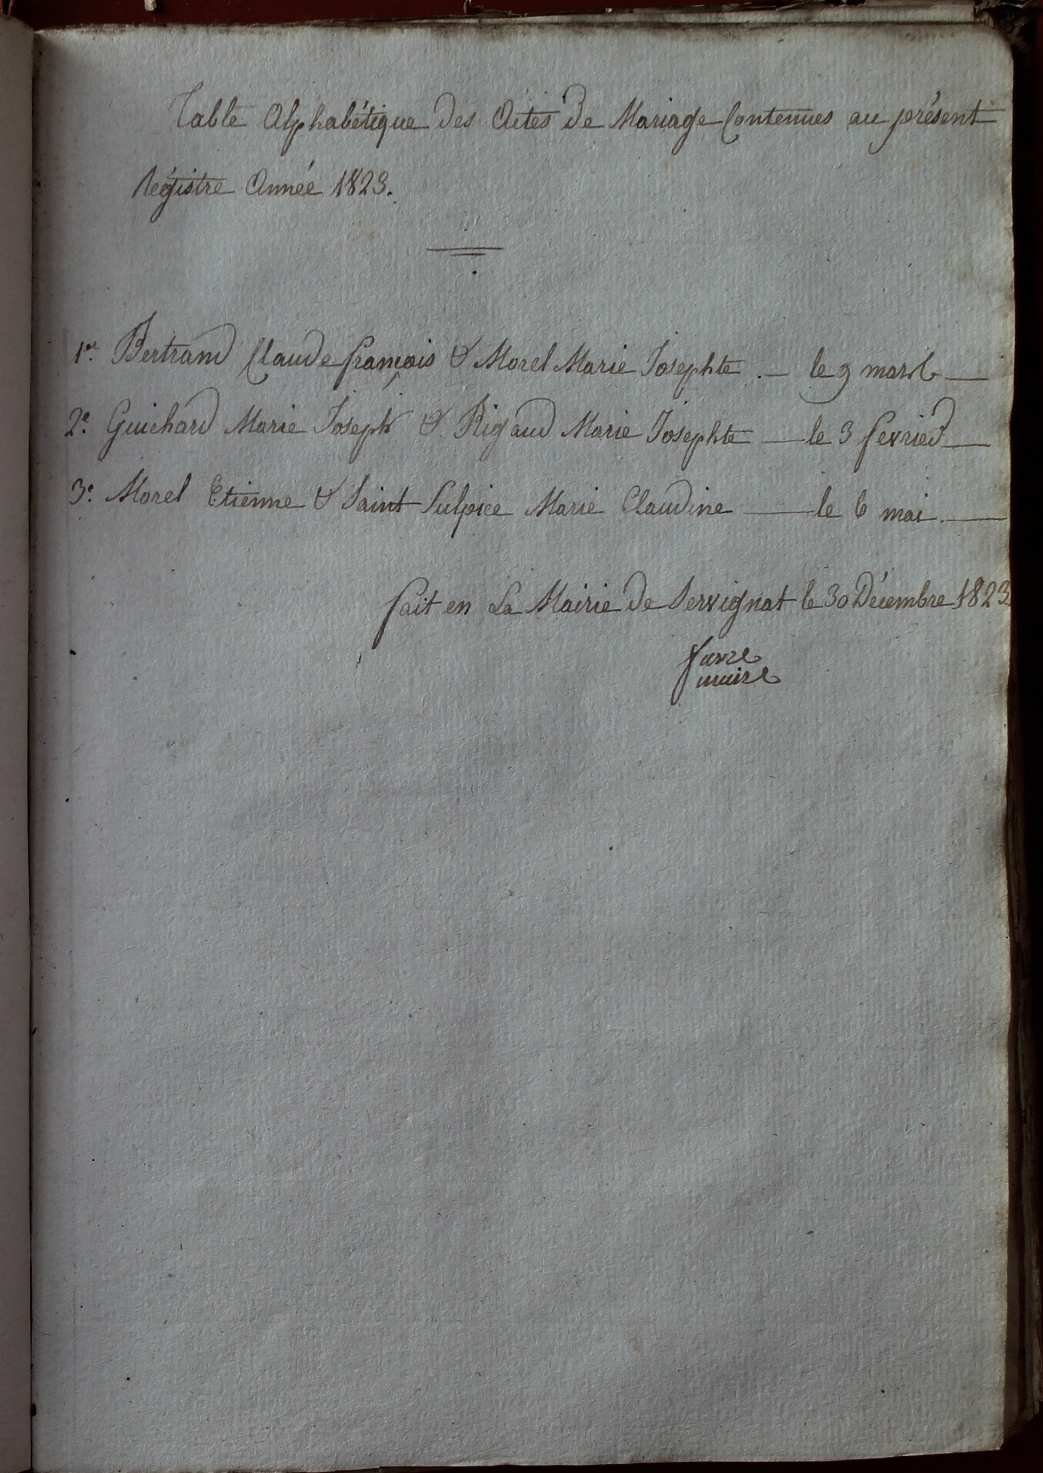 Table Alphabétique des Actes de Mariage Contenues au présent
Régistre Année 1823.
1er. Bertrand Claude françois & Morel Marie Josephte . — le 9 mars —
2e. Guichard Marie Joseph & Rigaud Marie Josephte — le 3 fevrier —
3e. Morel Etienne & Saint Sulpice Marie Claudine — le 6 mai . —
fait en La Mairie de Servignat le 30 Décembre 1823
favre
maire